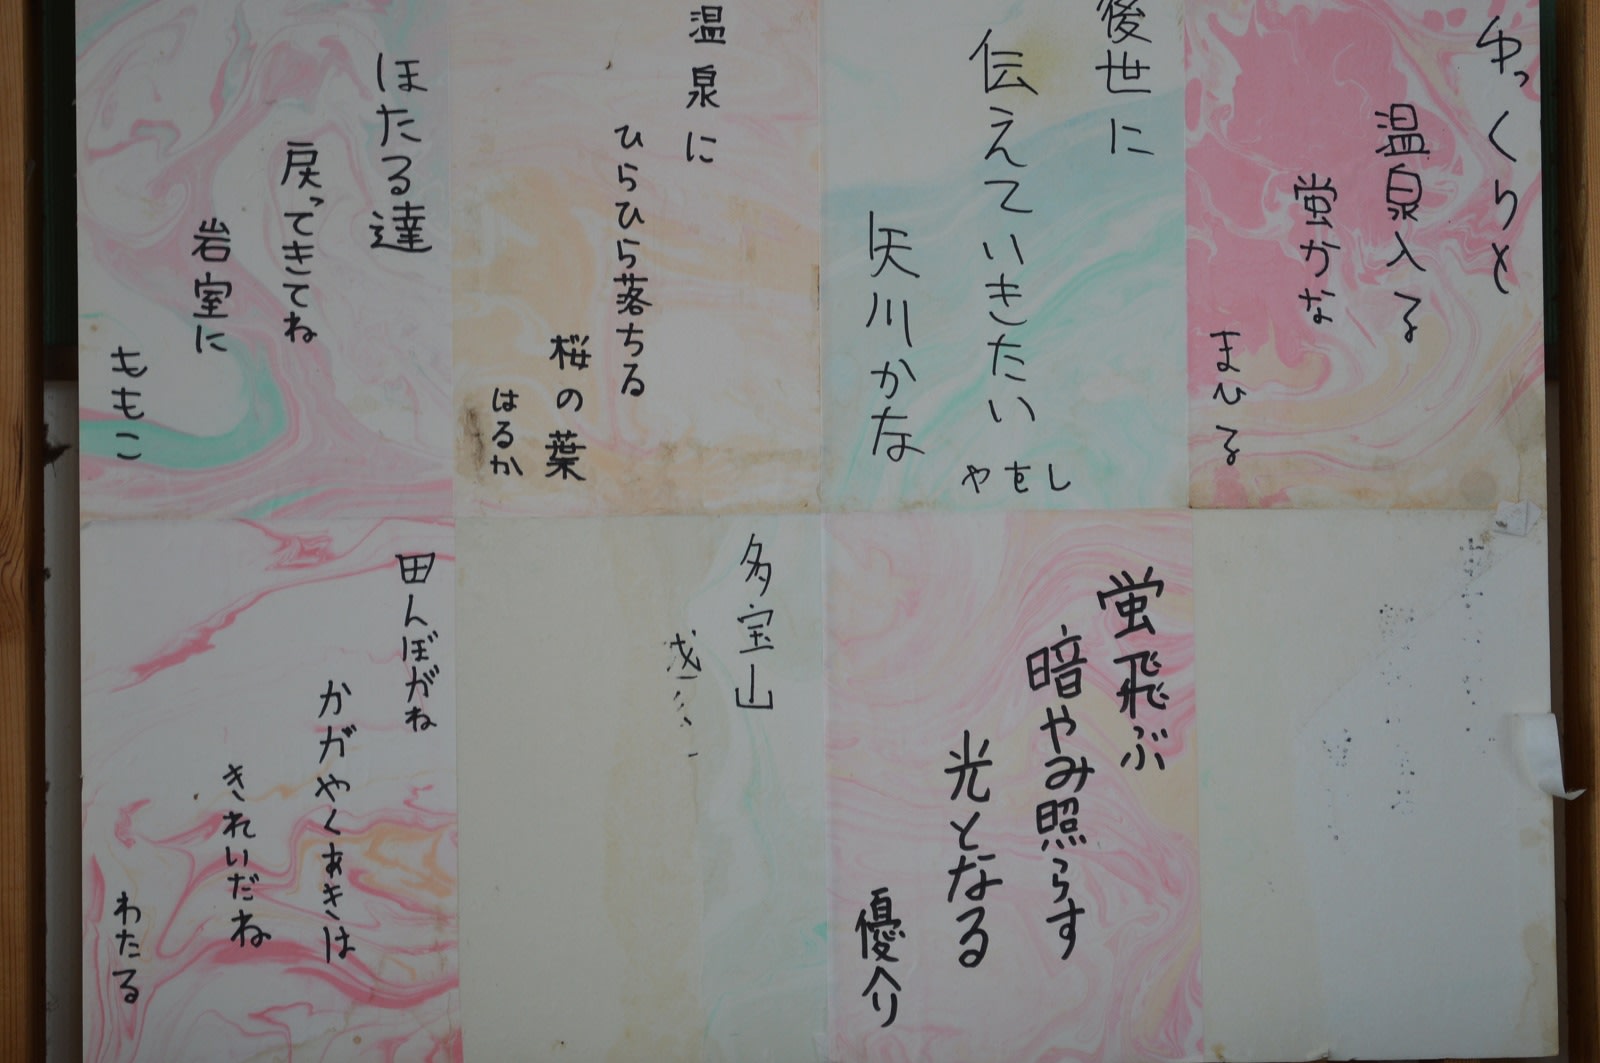 ゆっくりと
温泉入る
蛍かな
まひる
後世に
伝えていきたい
矢川かな
やをし
温泉に
ひらひら落ちる
桜の葉
はるか
ほたる達
戻ってきてね
岩室に
ももこ
蛍飛ぶ
暗やみ照らす
光となる
優介
多宝山
田んぼがね
かがやくあきは
きれいだね
わたる